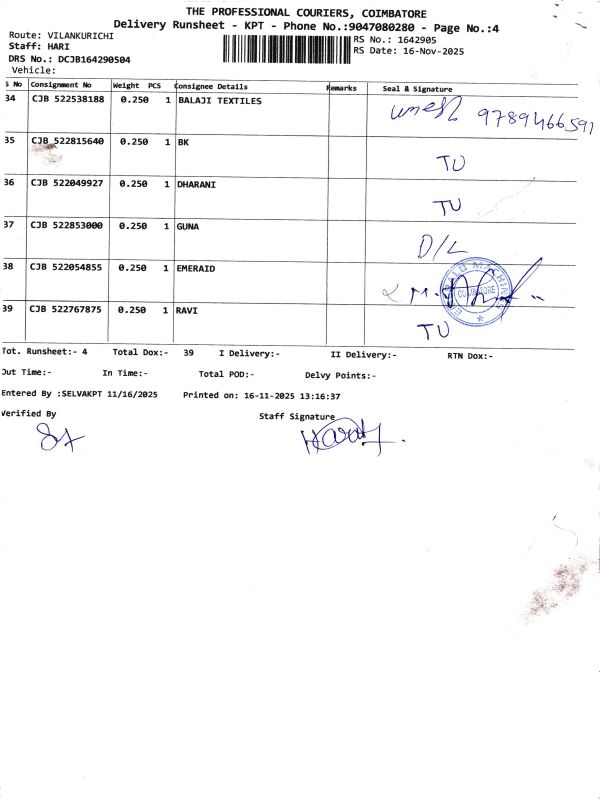 THE PROFESSIONAL COURIERS, COIMBATORE
Delivery Runsheet - KPT - Phone No.:9047080280 - Page No.:4
Route: VILANKURICHI
RS No.: 1642905
Staff: HARI
RS Date: 16-Nov-2025
DRS No.: DCJB164290504
Vehicle:
S No Consignment No Weight PCS Consignee Details Remarks Seal & Signature
34 CJB 522538188 0.250 1 BALAJI TEXTILES 9789466591
35 CJB 522815640 0.250 1 BK TU
36 CJB 522049927 0.250 1 DHARANI TU
37 CJB 522853000 0.250 1 GUNA D/L
38 CJB 522054855 0.250 1 EMERAID
39 CJB 522767875 0.250 1 RAVI TU
Tot. Runsheet:- 4 Total Dox:- 39 I Delivery:- II Delivery:- RTN Dox:-
Out Time:- In Time:- Total POD:- Delvy Points:-
Entered By :SELVAKPT 11/16/2025 Printed on: 16-11-2025 13:16:37
Verified By Staff Signature